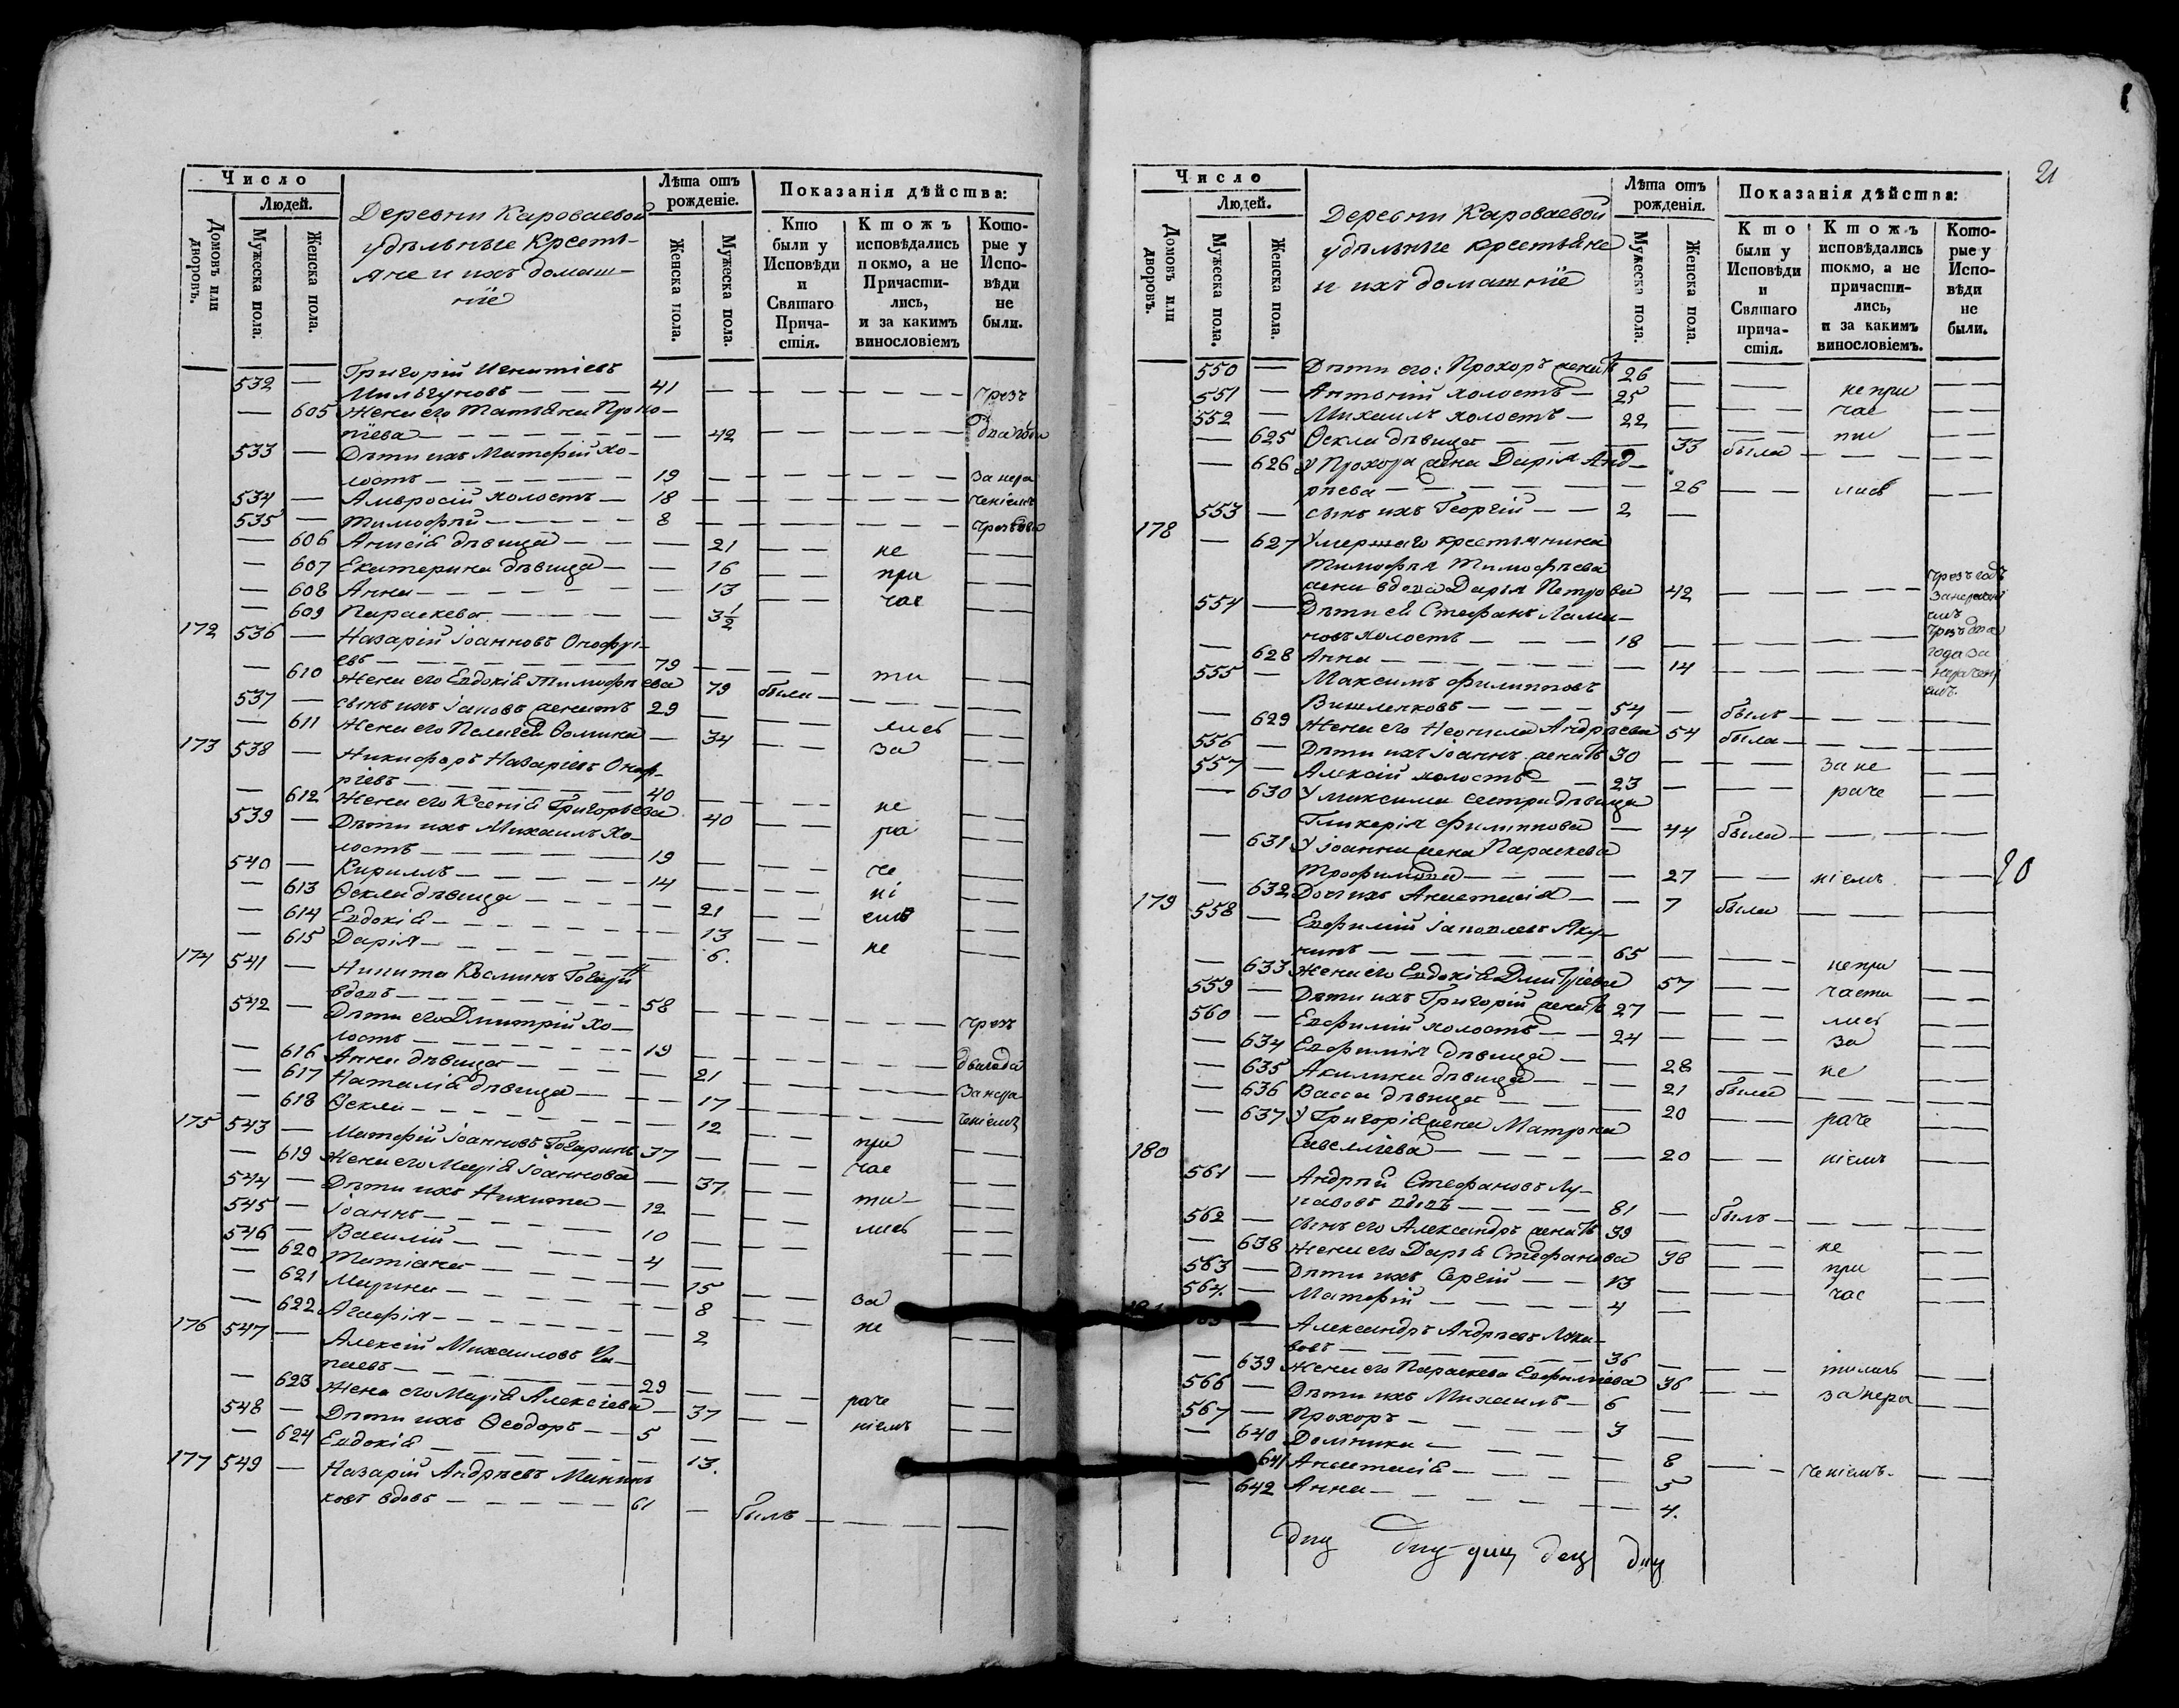 Число
Людей.
Домовъ или дворовъ.
Мужеска пола.
Женска пола.
Деревни Короваевой
удѣльные Кресть-
яне и ихъ домаш-
ніе
Лѣта отъ рожденіе.
Женска пола.
Мужеска пола.
Показанія дѣйства:
Кто были у Исповѣди и Святаго Прича-стія.
Ктожъ исповѣдались покмо, а не Причасти-лись, и за какимъ винословіемъ
Кото-рые у Испо-вѣди не были.
532 — Григорій Игнатіевъ
Мильгуновъ — 41 — чрезъ
— 605 Жена его Татьяна Проко-
піева — — 42 — два года
533 — Дѣти ихъ Матфій хо-
лостъ — 19 — за нера
534 — Амвросій холостъ — 18 — ченіемъ
535 — Тимофѣй — 8 —
— 606 Анисія дѣвица — — 21 — не —
— 607 Екатерина дѣвица — — 16 — при —
— 608 Анна — — 13 — час —
— 609 Параскева — — 3½ —
172 536 — Назарій Іоанновъ Онофрі-
евъ — 79 — ти —
— 610 Жена его Евдокія Тимофѣева 79 была —
537 — сынъ ихъ Іаковъ женатъ 29 —
— 611 Жена его Пелагея Фомина — 34 — лись —
173 538 — Никифоръ Назаріевъ Оноф-
ріевъ — 40 — за —
— 612 Жена его Ксенія Григорьева 40 — не —
539 — Дѣти ихъ Михаилъ хо-
лостъ — 19 — ра —
540 — Кириллъ — 14 — че —
— 613 Ѳекла дѣвица — — 21 — ні —
— 614 Евдокія — — 13 — емъ —
— 615 Дарія — — 6. — не —
174 541 — Никита Козминъ
вдовъ — 58 —
542 — Дѣти его Дмитрій хо-
лостъ — 19 — чрезъ
— 616 Анна дѣвица — — 21 — два года
— 617 Наталія дѣвица — — 17 — за нера
— 618 Ѳекла — — 12 — ченіемъ
175 543 — Матфій Іоанновъ 37 — при —
— 619 Жена его Марія Іоаннова — 37. — час —
544 — Дѣти ихъ Никита — 12 — ти —
545 — Іоаннъ — 10 — лись —
546 — Василій — 4 —
— 620 Татіана — — 15
— 621 Марина — — 8 — за —
— 622 Агафія — — 2 — не —
176 547 — Алексій Михаиловъ
— 29 —
— 623 Жена его Марія Алексіева — 37 — раче —
548 — Дѣти ихъ Ѳеодоръ — 5 — ніемъ —
— 624 Евдокія — — 13.
177 549 — Назарій Андрѣевъ
ковъ вдовъ — 61 — былъ —
21
Число
Людей.
Домовъ или дворовъ.
Мужеска пола.
Женска пола.
Деревни Короваевой
удѣльные крестьяне
и ихъ домашніе
Лѣта отъ рожденія.
Мужеска пола.
Женска пола.
Показанія дѣйства:
Кто были у Исповѣди и Святаго прича-стія.
Ктожъ исповѣдались токмо, а не причасти-лись, и за какимъ винословіемъ.
Кото-рые у Испо-вѣди не были.
550 — Дѣти его: Прохоръ женатъ 26 —
551 — Антоній холостъ — 25 — не при —
552 — Михаилъ холостъ — 22 — час —
— 625 Ѳекла дѣвица — — 33 была — ти —
— 626 У Прохора жена Дарія Анд-
рѣева — — 26 — лись —
553 — сынъ ихъ Георгій — 2 —
178 — 627 Умершаго крестьянина
Тимофея Тимофѣева
жена вдова Дарія Петрова 42 — чрезъ годъ
554 — Дѣти ея Стефанъ
холостъ — 18 — чрезъ два
— 628 Анна — — 14 — года за
555 — Максимъ Филипповъ
Вишленковъ — 54 — былъ —
— 629 Жена его Неонила Андрѣева 54 была —
556 — Дѣти ихъ Іоаннъ женатъ 30 — за не —
557 — Алексій холостъ — 23 — раче —
— 630 У Максима сестра дѣвица
Гликерія Филиппова — 44 была —
— 631 У Іоанна жена Параскева
Трофимова — — 27 — ніемъ —
— 632 Дочь ихъ Анастасія — — 7 была —
20
179 558 — Евфимій Іаковлевъ Яку-
нинъ — 65 — не при —
— 633 Жена его Евдокія Дмитріева 57 — части —
559 — Дѣти ихъ Григорій женатъ 27 — лись —
560 — Евфимій холостъ — 24 — за —
— 634 Евфимія дѣвица — — 28 — не —
— 635 Акилина дѣвица — — 21 была —
— 636 Васса дѣвица — — 20 — раче —
— 637 У Григорія жена Матрона
Савеліева — — 20 — ніемъ —
180 561 — Андрей Стефановъ Лу-
вдовъ — 81 — былъ —
562 — сынъ его Александръ женатъ 39 — не —
— 638 Жена его Дарья Стефанова 38 — при —
563 — Дѣти ихъ Сергій — 13 — час —
564. — Матфій — 4 —
Александръ Андрѣевъ
ковъ — 36 — тилась —
— 639 Жена его Параскева Евфиміева 36 — за нера —
566 — Дѣти ихъ Михаилъ — 6 —
567 — Прохоръ — 3 —
— 640 Домника — — 8
641 Анастасія — — 5 — ченіемъ. —
— 642 Анна — — 4.